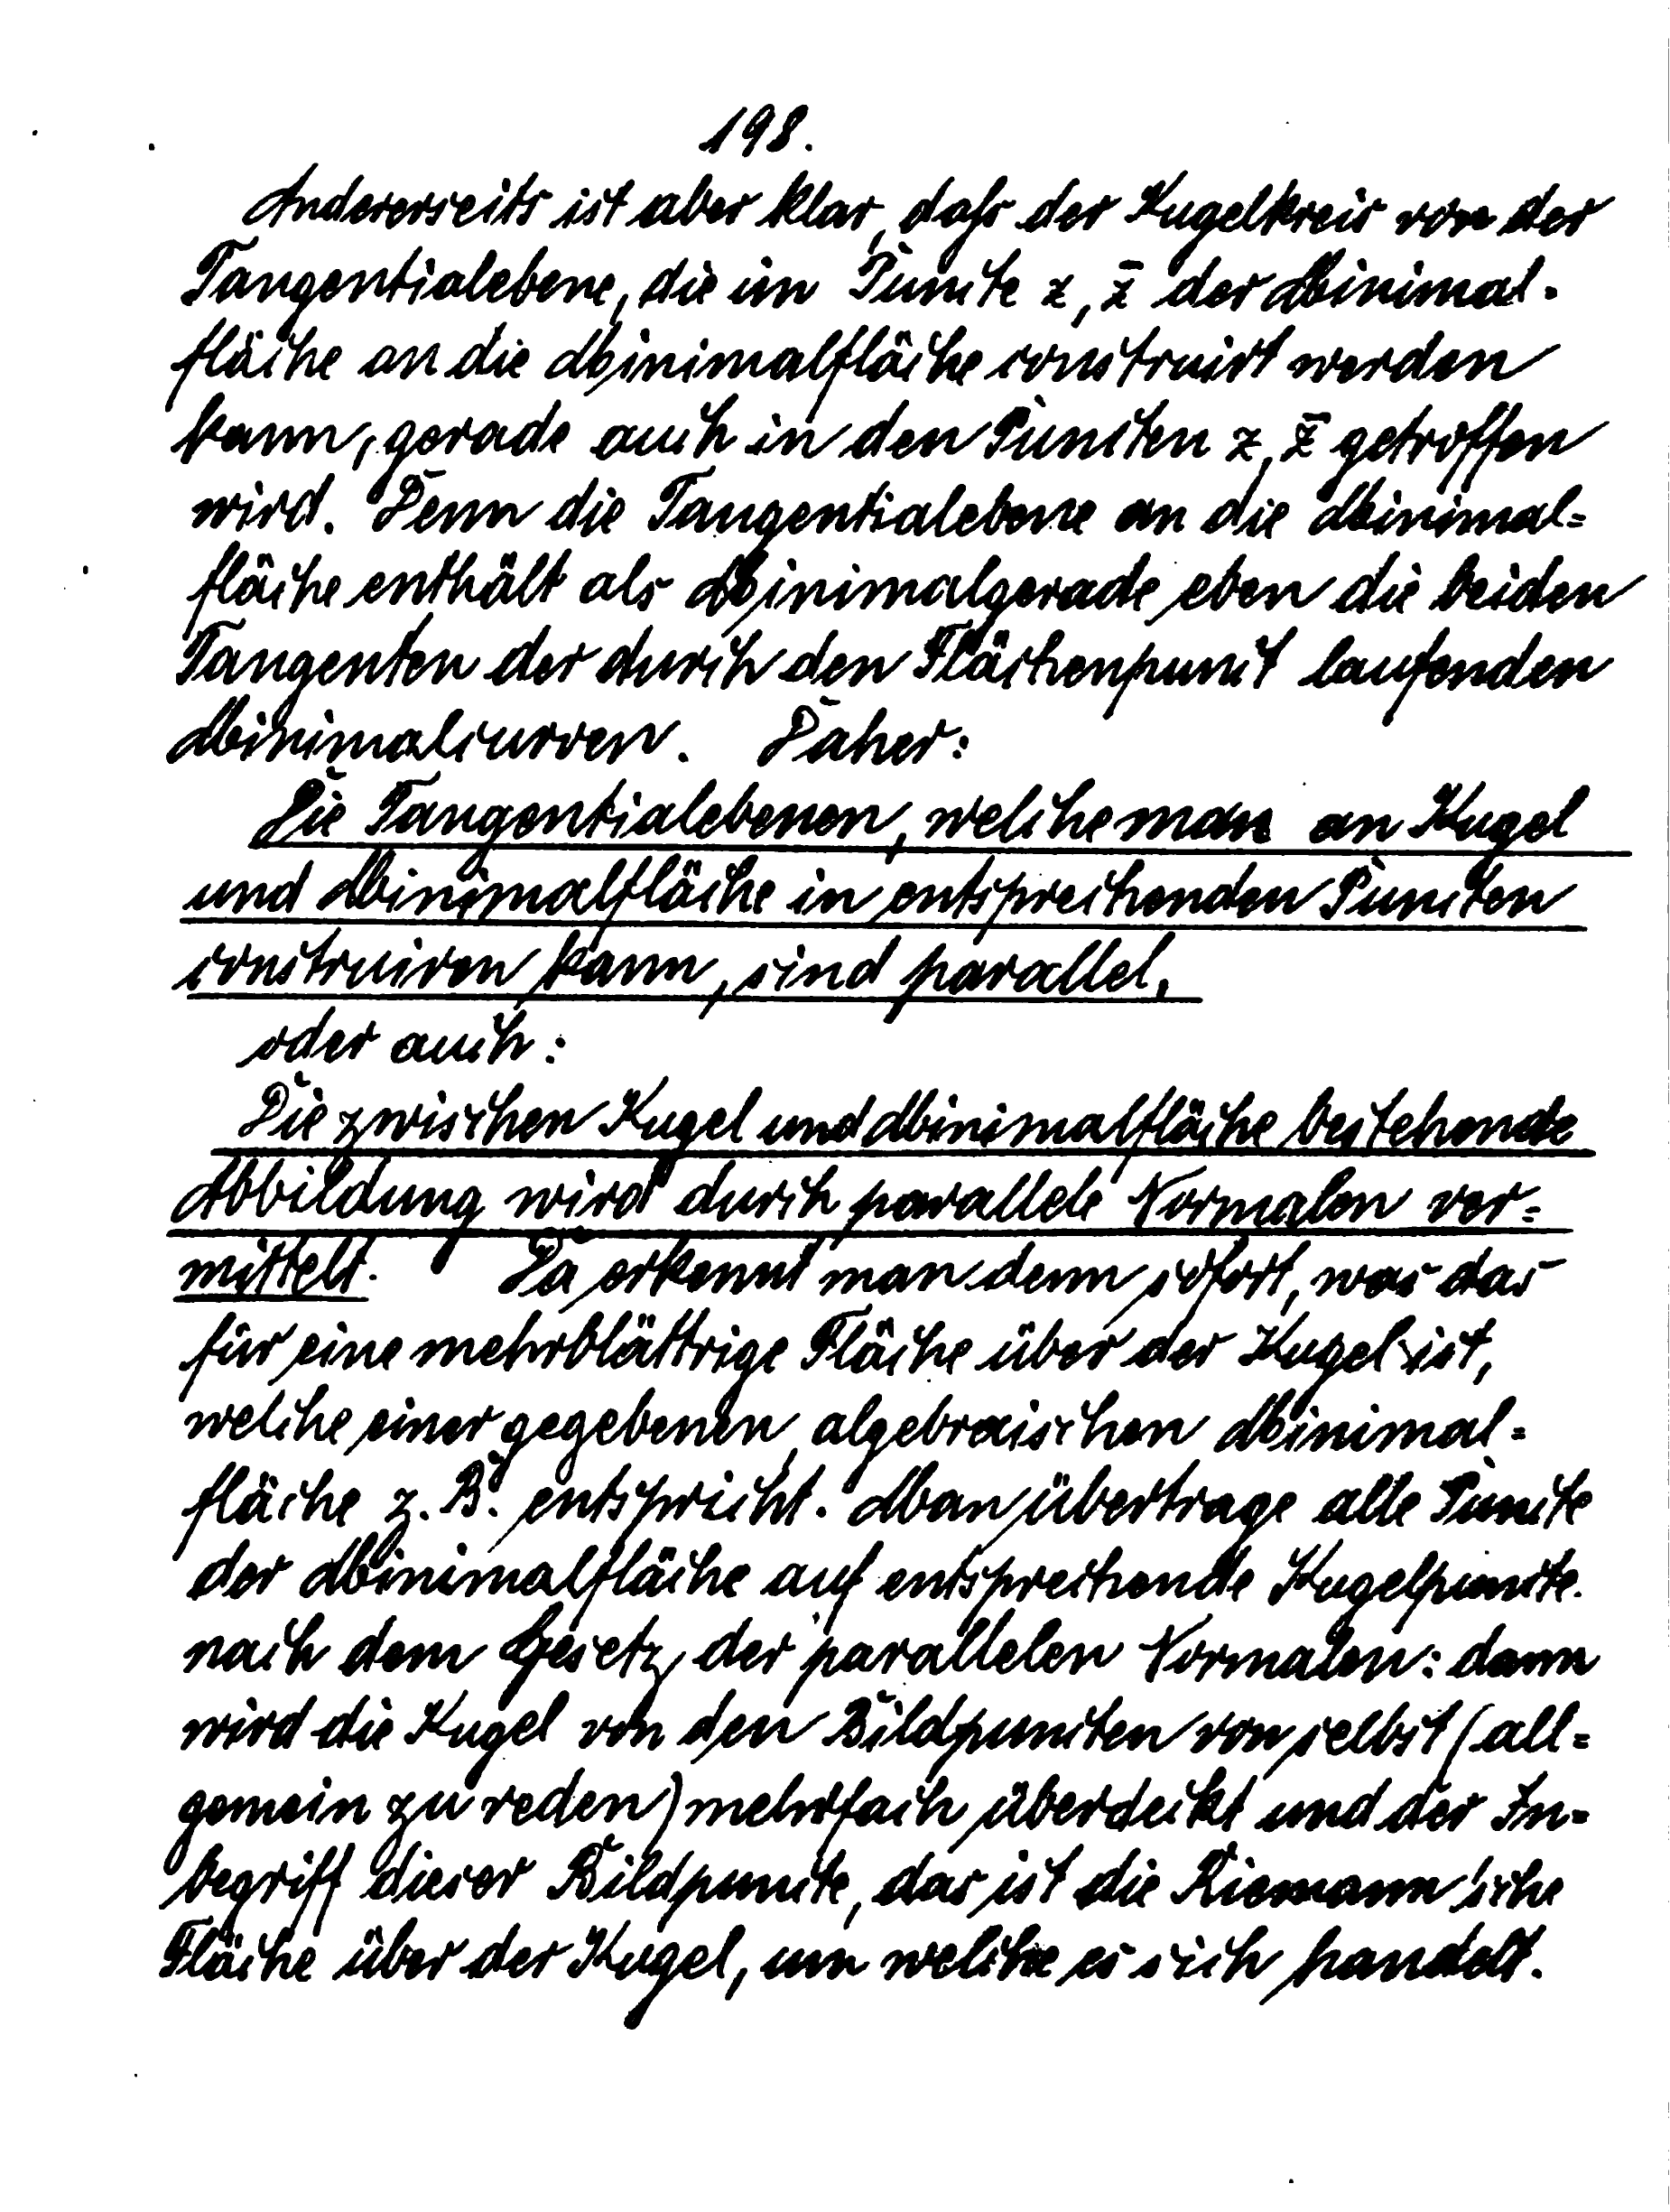 198.
Andererseits ist aber klar, dass der Kugelkreis von der
Tangentialebene, die im Puncte z, z̄ der Minimal-
fläche an die Minimalfläche construirt werden
kann, gerade auch in den Puncten z, z̄ getroffen
wird. Denn die Tangentialebene an die Minimal=
fläche enthält als Minimalgerade eben die beiden
Tangenten der durch den Flächenpunct laufenden
Minimalcurven. Daher:
Die Tangentialebenen, welche man an Kugel
und Minimalfläche in entsprechenden Puncten
construiren kann, sind parallel,
oder auch:
Die zwischen Kugel und Minimalfläche bestehende
Abbildung wird durch parallele Normalen ver=
mittelt. Da erkennt man denn sofort, was das
für eine mehrblättrige Fläche über der Kugel ist,
welche einer gegebenen, algebraischen Minimal=
fläche z. B. entspricht. Man übertrage alle Puncte
der Minimalfläche auf entsprechende Kugelpuncte
nach dem Gesetz der parallelen Normalen: dann
wird die Kugel von den Bildpuncten von selbst (all=
gemein zu reden) mehrfach überdeckt und der In=
begriff dieser Bildpuncte, das ist die Riemann'sche
Fläche über der Kugel, um welche es sich handelt.